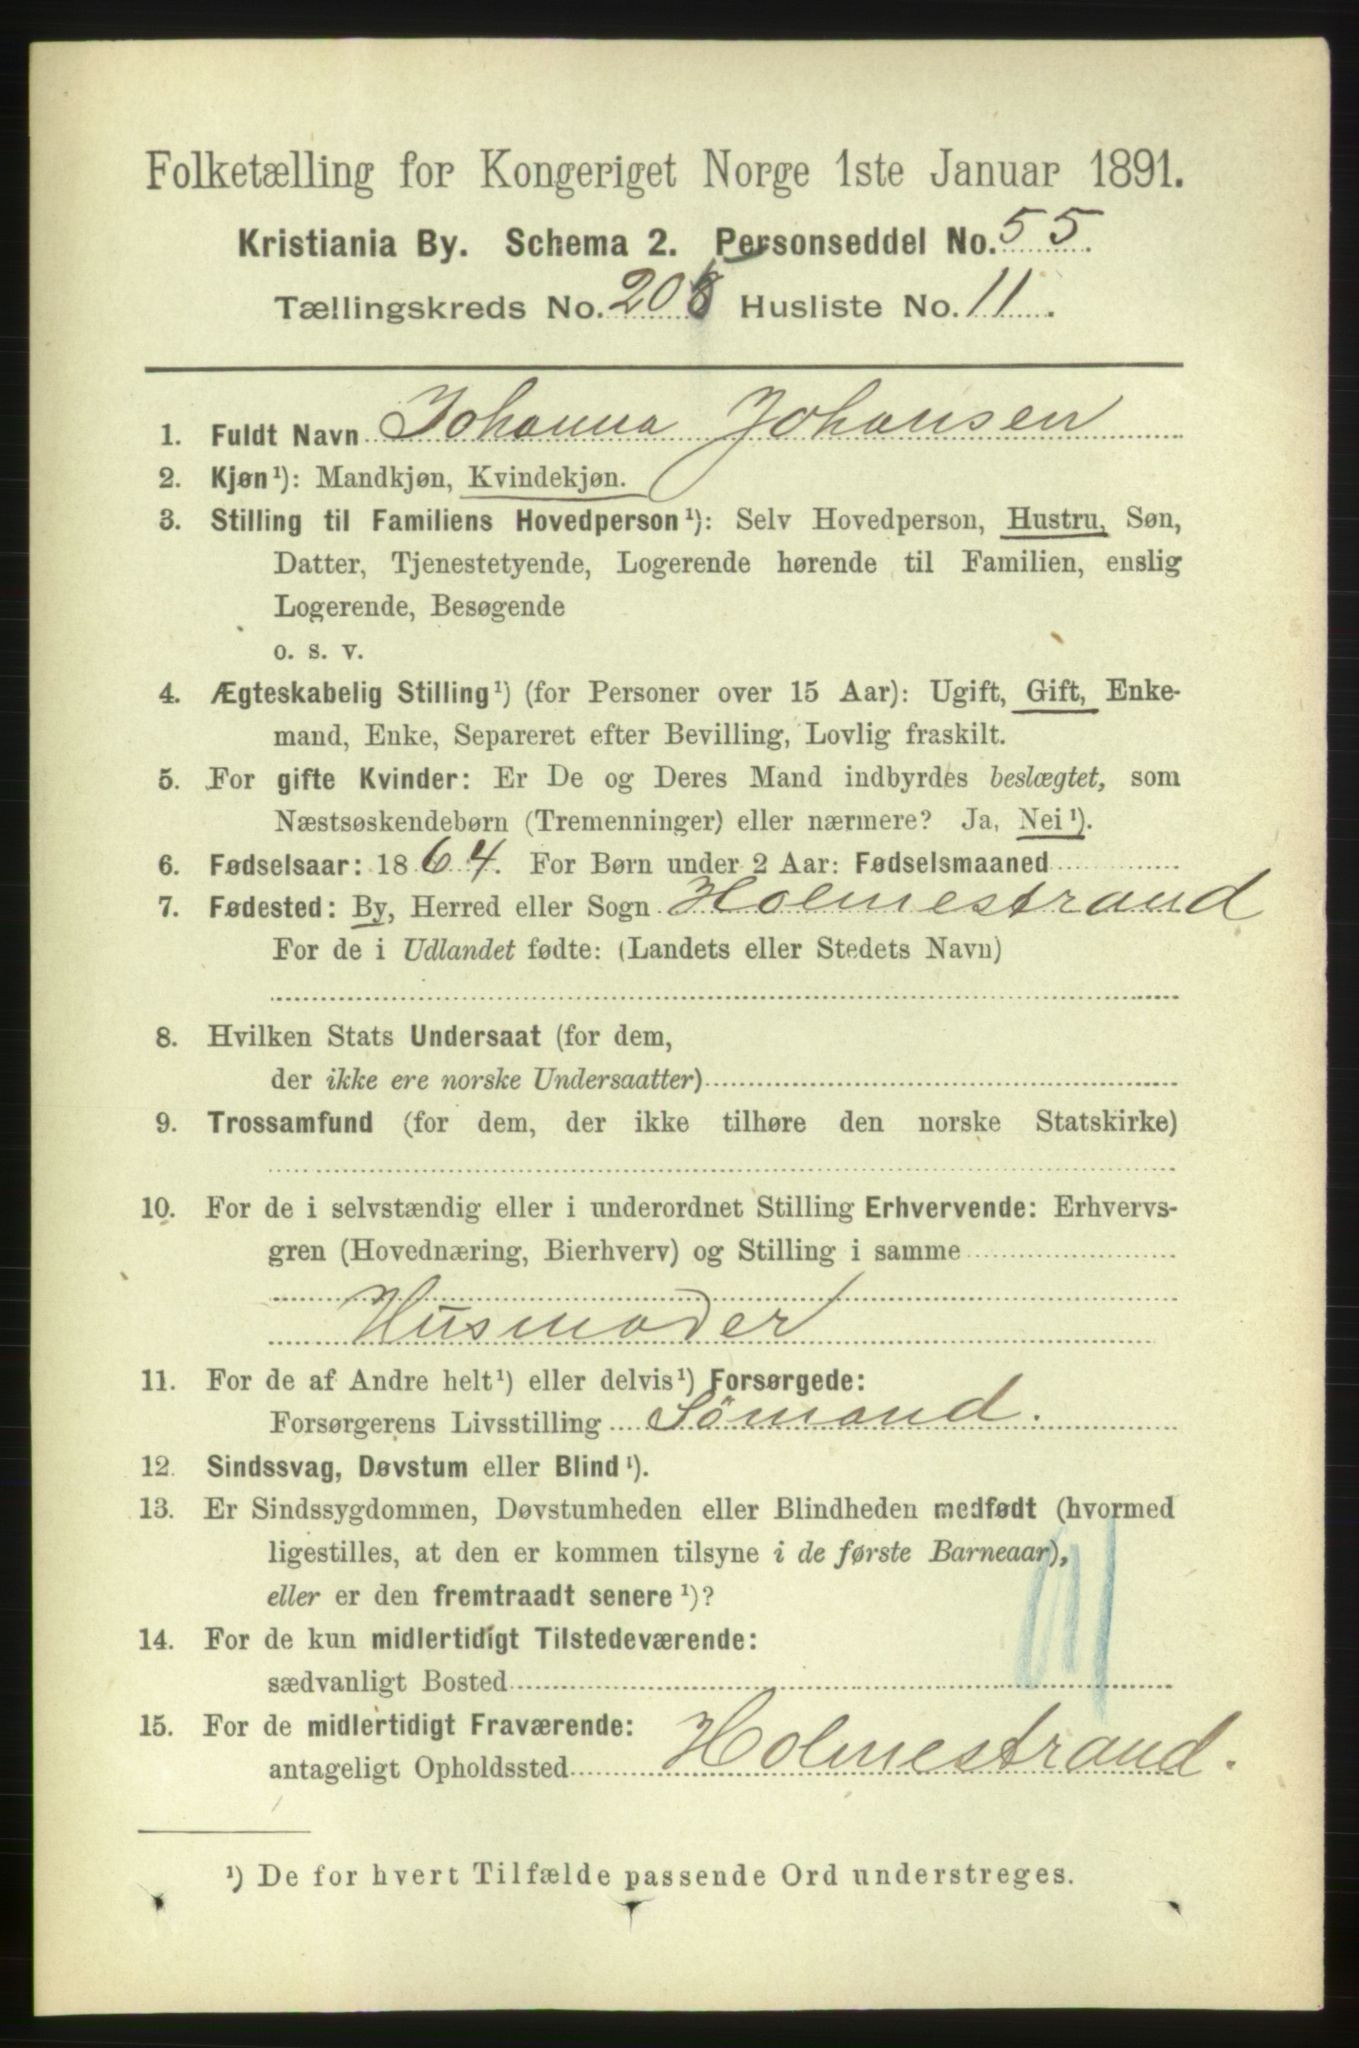 Folketælling for Kongeriget Norge 1ste Januar 1891.
Kristiania By. Schema 2. Personseddel No. 55.
Tællingskreds No. 208 Husliste No. 11.
1. Fuldt Navn Johanna Johansen
2. Kjøn¹): Mandkjøn, Kvindekjøn.
3. Stilling til Familiens Hovedperson¹): Selv Hovedperson, Hustru, Søn,
Datter, Tjenestetyende, Logerende hørende til Familien, enslig
Logerende, Besøgende
o. s. v.
4. Ægteskabelig Stilling¹) (for Personer over 15 Aar): Ugift, Gift, Enke-
mand, Enke, Separeret efter Bevilling, Lovlig fraskilt.
5. For gifte Kvinder: Er De og Deres Mand indbyrdes beslægtet, som
Næstsøskendebørn (Tremenninger) eller nærmere? Ja, Nei¹).
6. Fødselsaar: 1864. For Børn under 2 Aar: Fødselsmaaned
7. Fødested: By, Herred eller Sogn Holmestrand
For de i Udlandet fødte: (Landets eller Stedets Navn)
8. Hvilken Stats Undersaat (for dem,
der ikke ere norske Undersaatter)
9. Trossamfund (for dem, der ikke tilhøre den norske Statskirke)
10. For de i selvstændig eller i underordnet Stilling Erhvervende: Erhvervs-
gren (Hovednæring, Bierhverv) og Stilling i samme
Husmoder
11. For de af Andre helt¹) eller delvis¹) Forsørgede:
Forsørgerens Livsstilling Sömand.
12. Sindssvag, Døvstum eller Blind¹).
13. Er Sindssygdommen, Døvstumheden eller Blindheden medfødt (hvormed
ligestilles, at den er kommen tilsyne i de første Barneaar),
eller er den fremtraadt senere¹)?
14. For de kun midlertidigt Tilstedeværende:
sædvanligt Bosted
15. For de midlertidigt Fraværende:
antageligt Opholdssted Holmestrand.
¹) De for hvert Tilfælde passende Ord understreges.